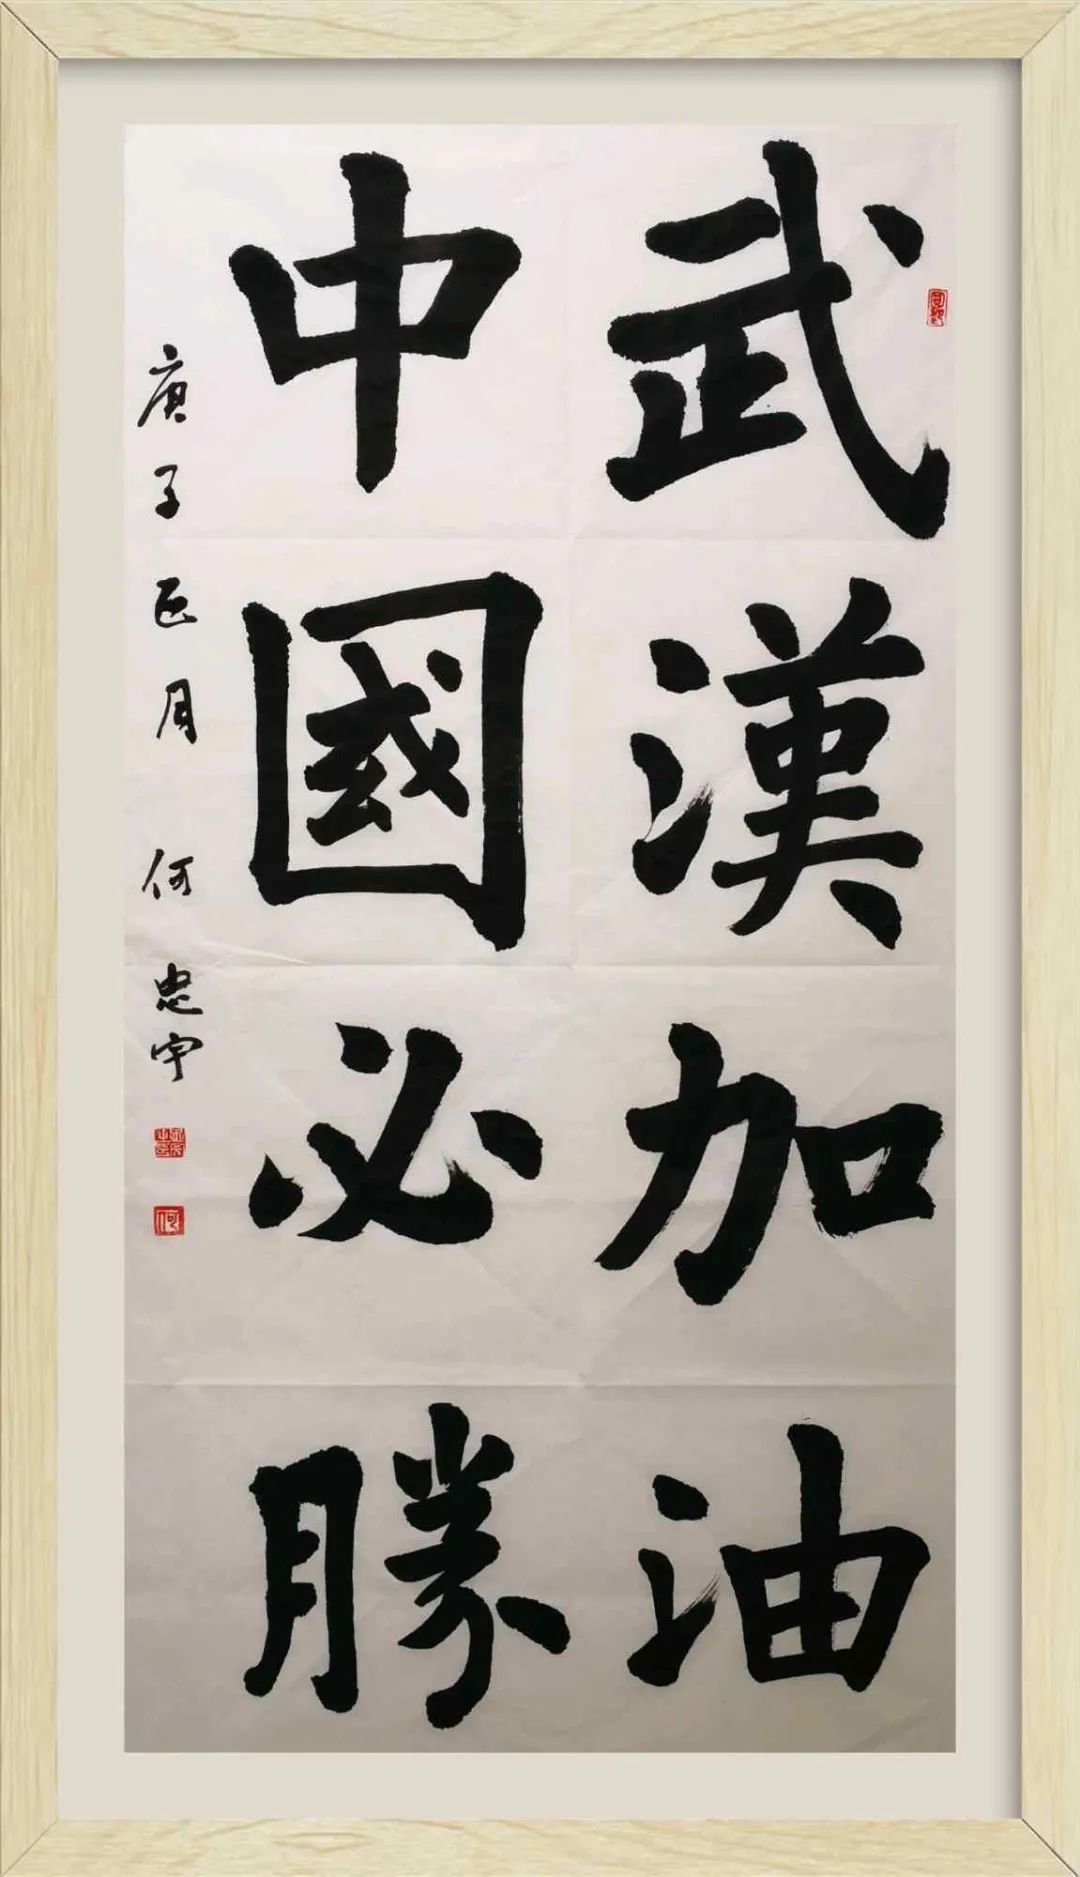 武漢加油
中國必勝
庚子正月 何忠宇